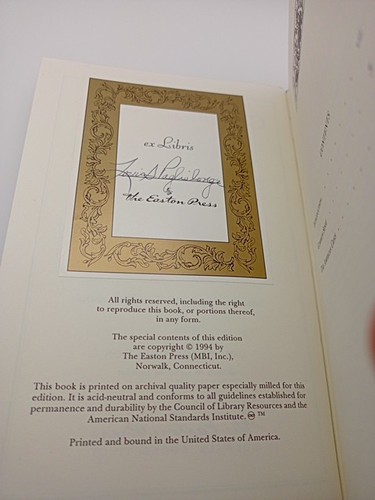 ex Libris
The Easton Press
All rights reserved, including the right
to reproduce this book, or portions thereof,
in any form.
The special contents of this edition
are copyright © 1994 by
The Easton Press (MBI, Inc.),
Norwalk, Connecticut.
This book is printed on archival quality paper especially milled for this
edition. It is acid-neutral and conforms to all guidelines established for
permanence and durability by the Council of Library Resources and the
American National Standards Institute. ♾ ™
Printed and bound in the United States of America.